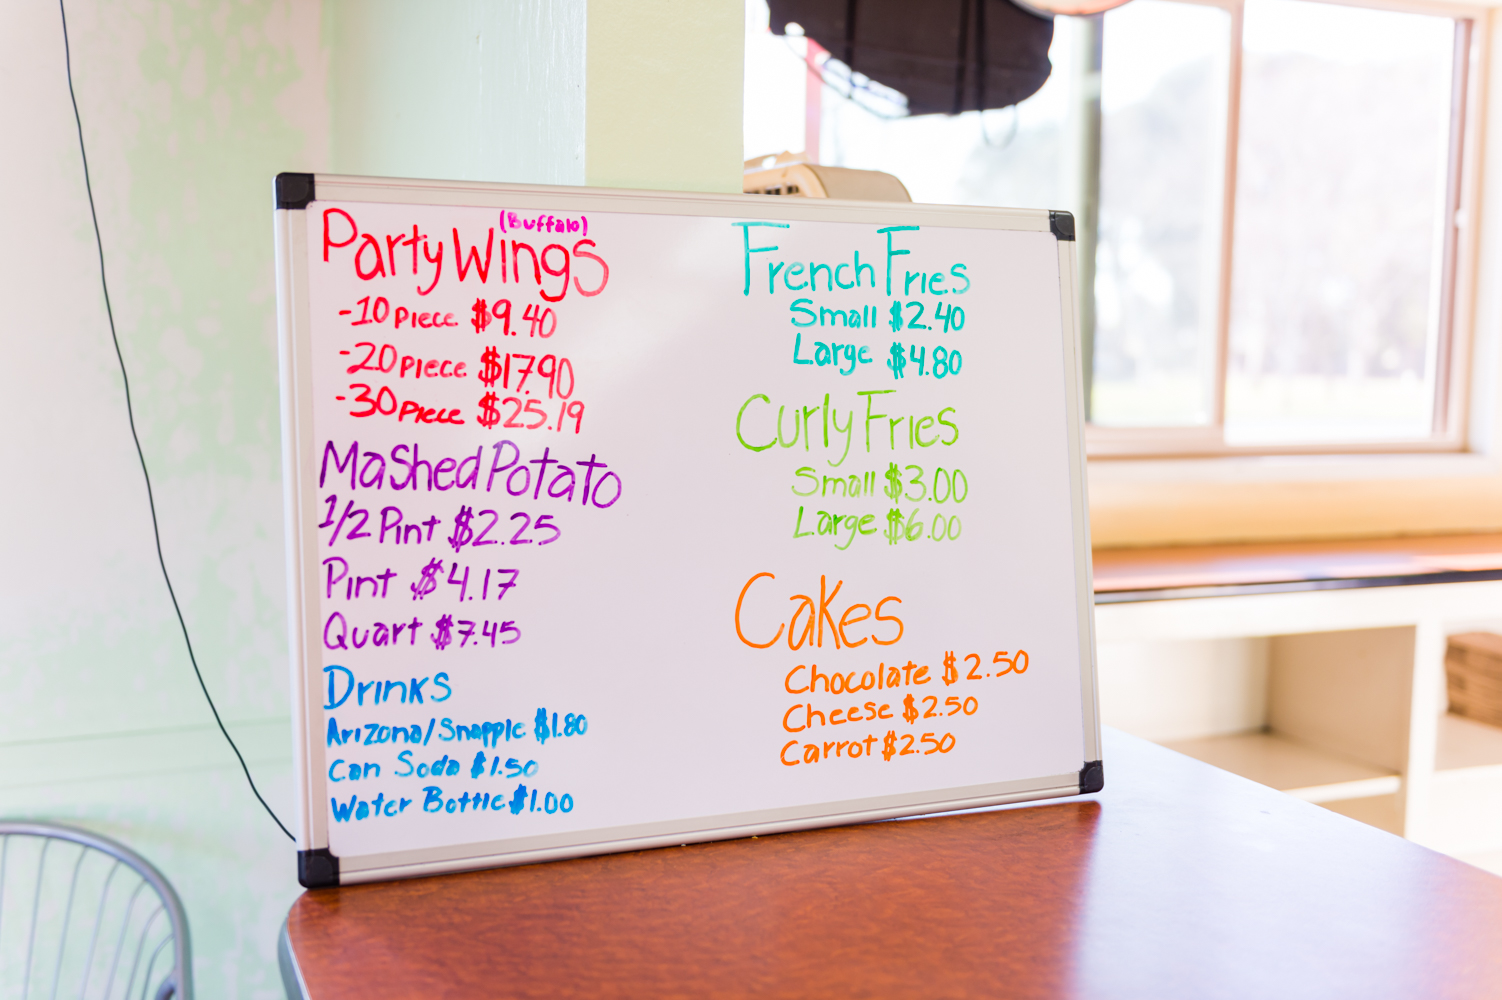 (Buffalo)
Party Wings
-10 Piece $9.40
-20 Piece $17.90
-30 Piece $25.19
Mashed Potato
1/2 Pint $2.25
Pint $4.17
Quart $7.45
Drinks
Arizona/Snapple $1.80
Can Soda $1.50
Water Bottle $1.00
French Fries
Small $2.40
Large $4.80
Curly Fries
Small $3.00
Large $6.00
Cakes
Chocolate $2.50
Cheese $2.50
Carrot $2.50